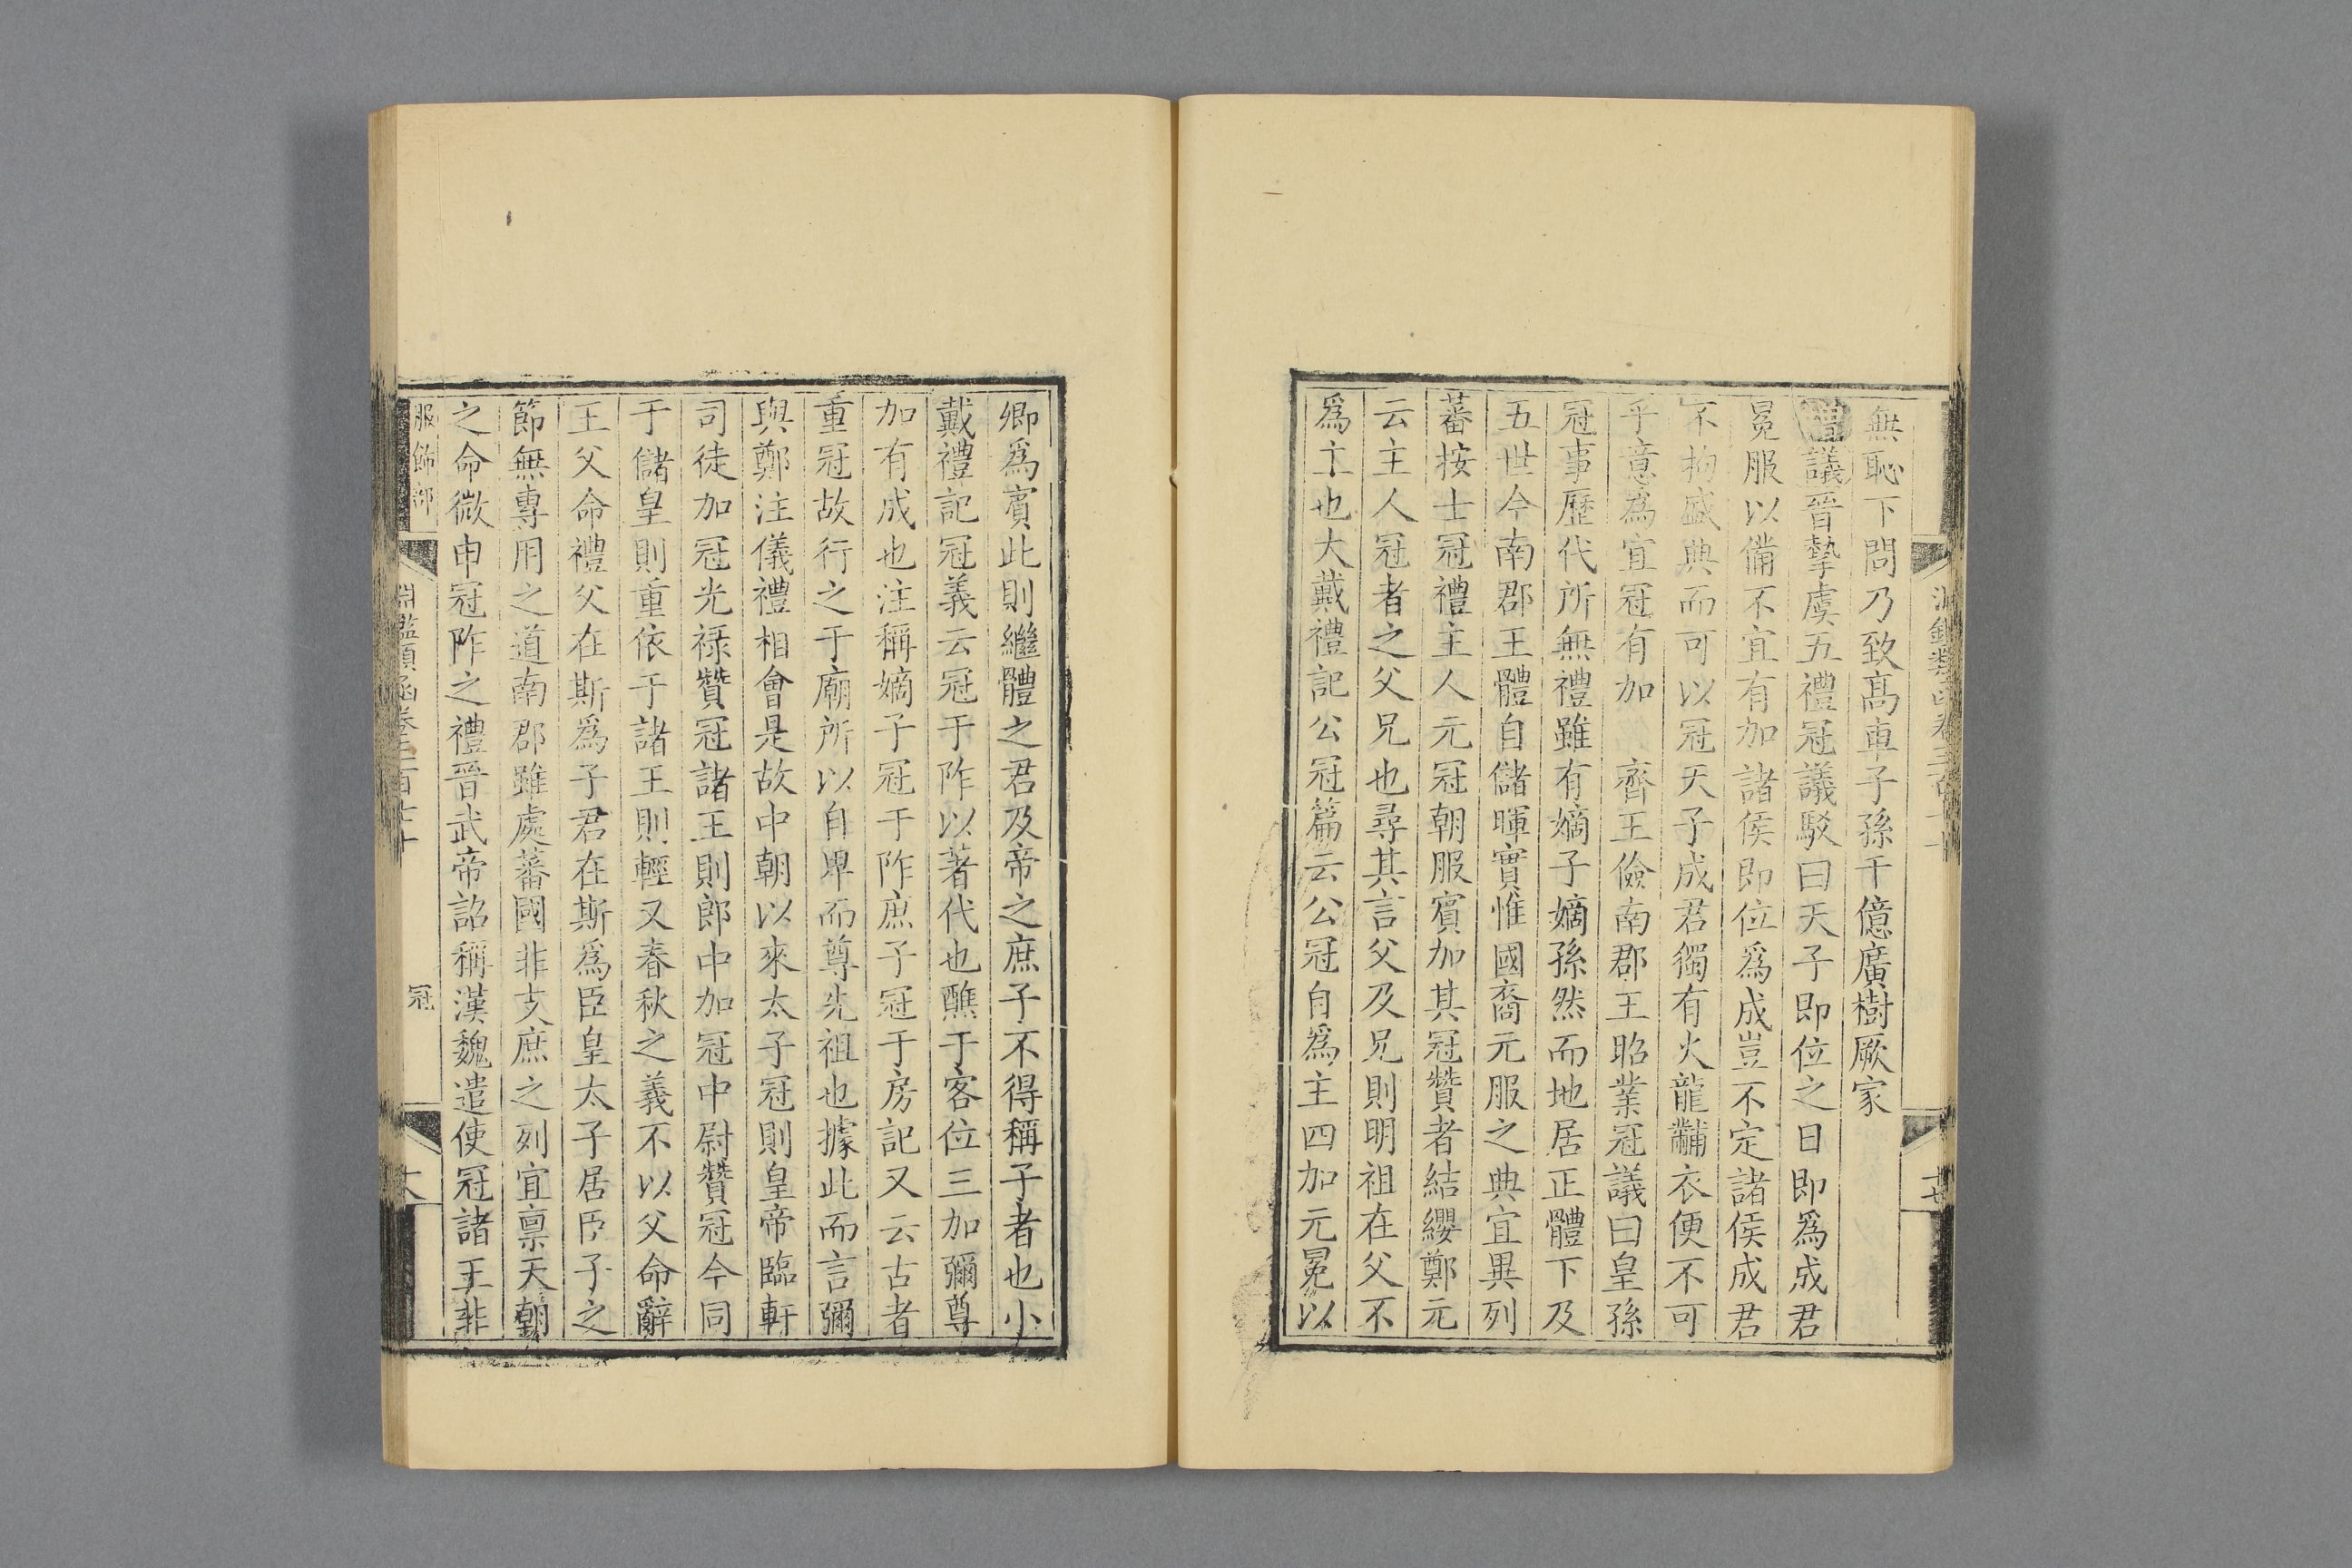 無恥下問乃致髙車子孫千億廣樹厥家
議晉摯虞五禮冠議駁曰天子即位之日即爲成君
冕服以備不宜有加諸侯即位爲成豈不定諸侯成君
不拘盛典而可以冠天子成君獨有火龍黼衣便不可
乎意爲宜冠有加 齊王儉南郡王昭業冠議曰皇孫
冠事歷代所無禮雖有嫡子嫡孫然而地居正體下及
五世今南郡王體自儲暉實惟國裔元服之典宜異列
蕃按士冠禮主人元冠朝服賓加其冠贊者結纓鄭元
云主人冠者之父兄也尋其言父及兄則明祖在父不
爲主也大戴禮記公冠篇云公冠自爲主四加元冕以
卿爲賓此則繼體之君及帝之庶子不得稱子者也小
戴禮記冠義云冠于阼以著代也醮于客位三加彌尊
加有成也注稱嫡子冠于阼庶子冠于房記又云古者
重冠故行之于廟所以自卑而尊先祖也據此而言彌
與鄭注儀禮相會是故中朝以來太子冠則皇帝臨軒
司徒加冠光禄贊冠諸王則郎中加冠中尉贊冠今同
于儲皇則重依于諸王則輕又春秋之義不以父命辭
王父命禮父在斯爲子君在斯爲臣皇太子居臣子之
節無專用之道南郡雖處蕃國非支庶之列宜禀天朝
之命微申冠阼之禮晉武帝詔稱漢魏遣使冠諸王非
服飾部
冠